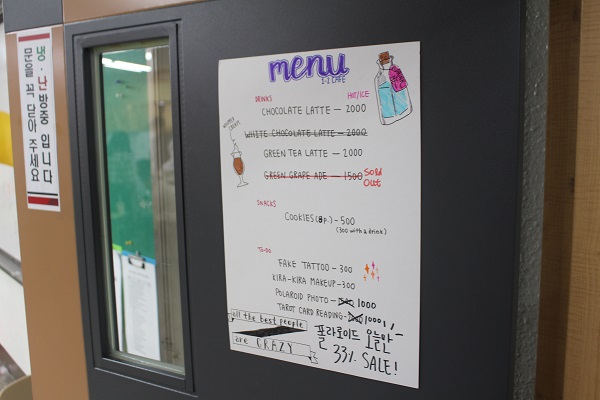 냉·난방중 입니다
문을 꼭 닫아 주세요
menu
1-1 CAFE
DRINKS
HOT/ICE
CHOCOLATE LATTE — 2000
WHITE CHOCOLATE LATTE — 2000
GREEN TEA LATTE — 2000
GREEN GRAPE ADE — 1500 SOLD OUT
SNACKS
COOKIES (8p.) - 500
(300 with a drink)
TO-DO
FAKE TATTOO - 300
KIRA-KIRA MAKEUP - 300
POLAROID PHOTO - 1000
TAROT CARD READING - 1000
all the best people
are CRAZY
폴라로이드 오늘만
33% SALE!